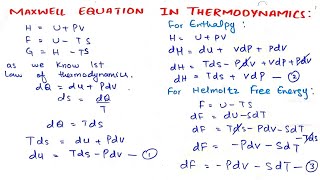 MAXWELL EQUATION IN THERMODYNAMICS:
H = U + PV
F = U - TS
G = H - TS
as we know Ist
Law of thermodynamics.
dQ = du + Pdv
ds = dQ/T
dQ = Tds
Tds = du + Pdv
du = Tds - Pdv - ①
For Enthalpy:
H = U + PV
dH = du + vdP + Pdv
dH = Tds - Pdv + vdP + Pdv
dH = Tds + vdP - ②
For Helmoltz Free Energy:
F = U - TS
dF = du - SdT - Tds
dF = Tds - Pdv - SdT - Tds
dF = -Pdv - SdT
dF = -Pdv - SdT - ③